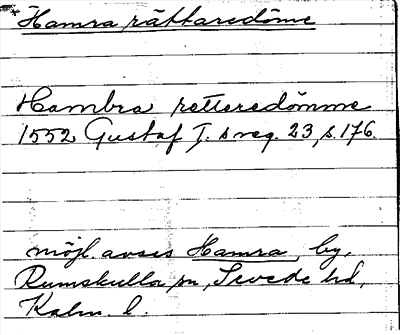 *Hamra rättaredöme
Hambra retteredömme
1552 Gustaf I.s reg. 23, s. 176.
möjl. avses Hamra, by,
Rumskulla sn, Sevede hd,
Kalm. l.